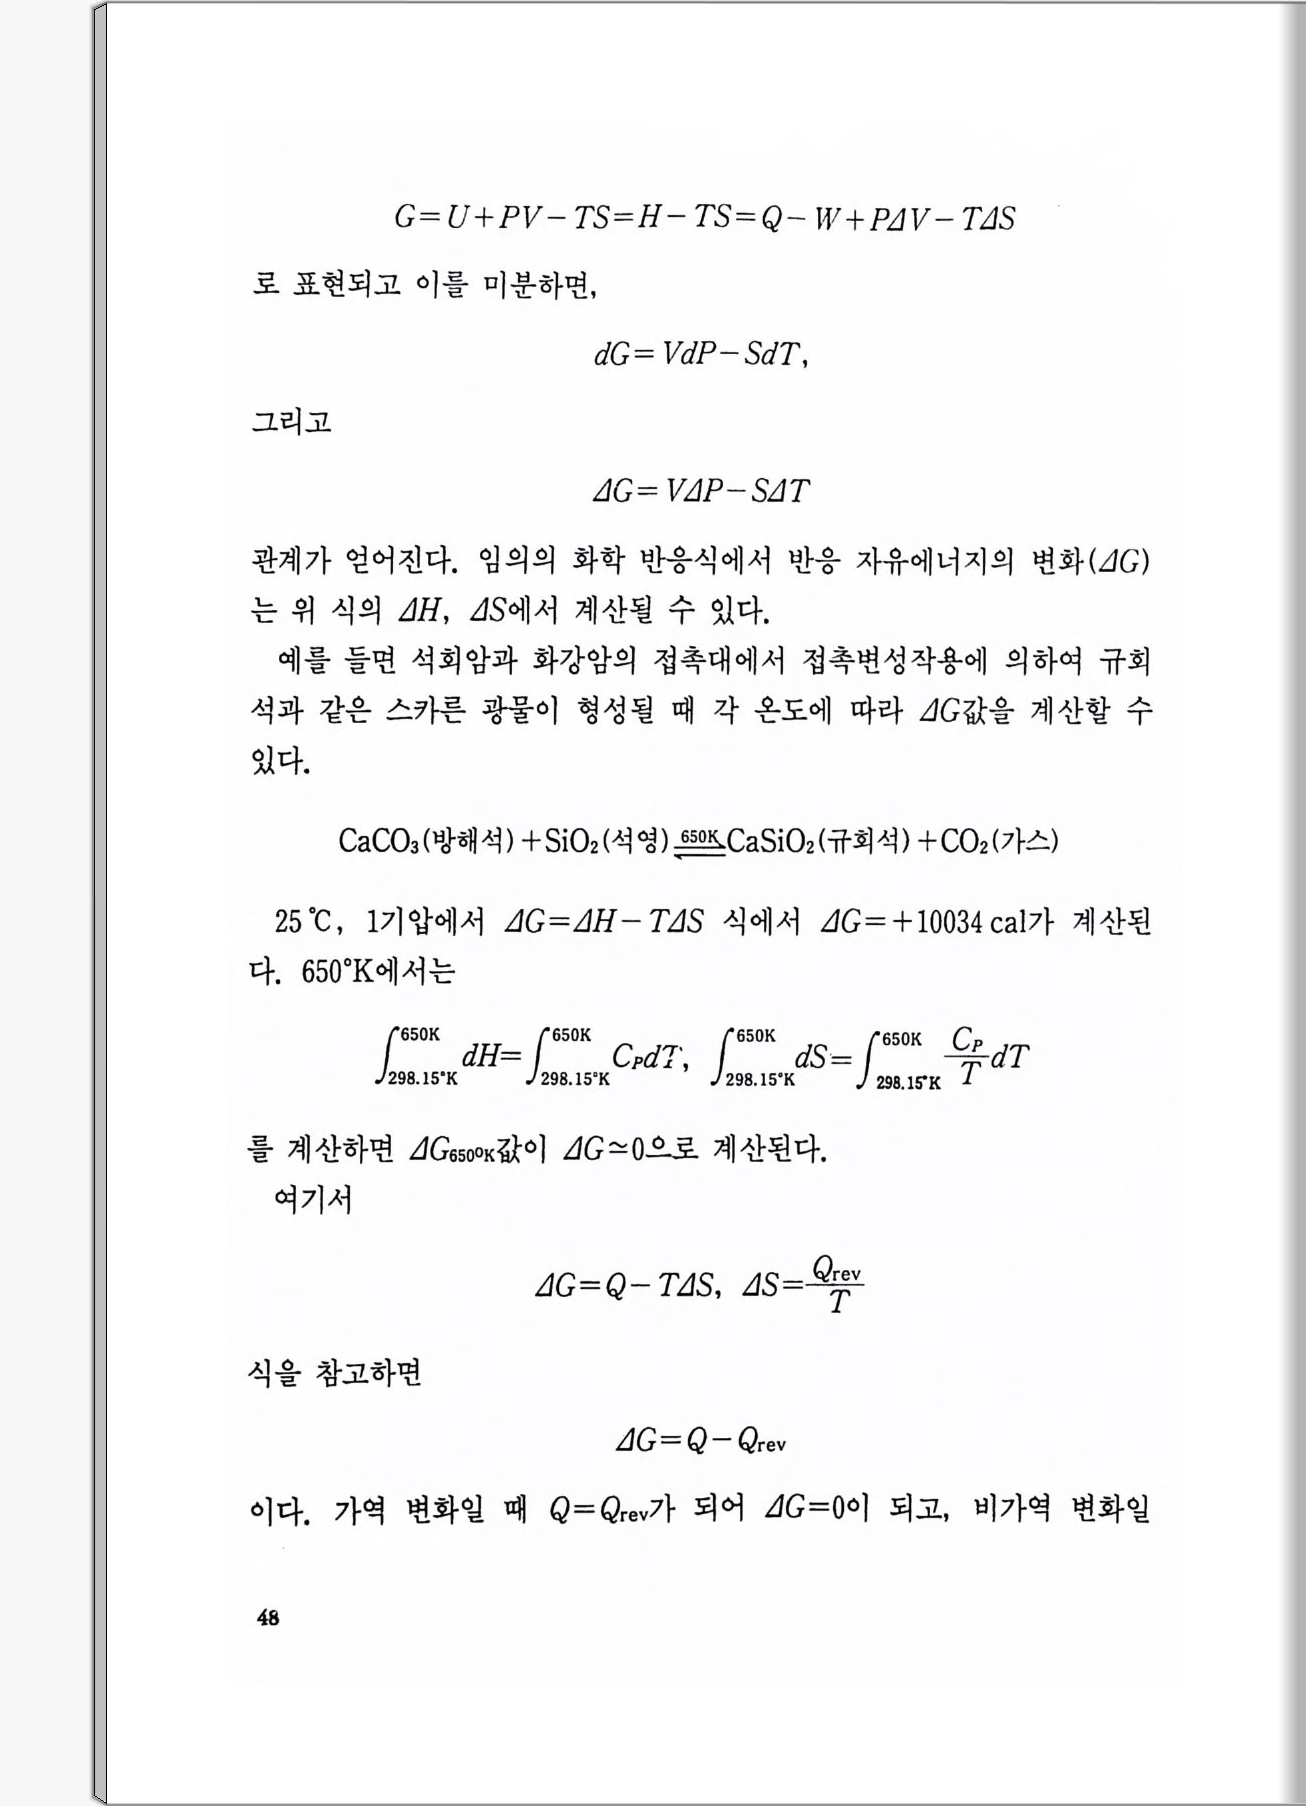 G=U+PV−TS=H−TS=Q−W+PΔV−TΔS
로 표현되고 이를 미분하면,
dG=VdP−SdT,
그리고
ΔG=VΔP−SΔT
관계가 얻어진다. 임의의 화학 반응식에서 반응 자유에너지의 변화(ΔG)
는 위 식의 ΔH, ΔS에서 계산될 수 있다.
예를 들면 석회암과 화강암의 접촉대에서 접촉변성작용에 의하여 규회
석과 같은 스카른 광물이 형성될 때 각 온도에 따라 ΔG값을 계산할 수
있다.
CaCO₃(방해석)+SiO₂(석영) 650K ⇌ CaSiO₂(규회석)+CO₂(가스)
25℃, 1기압에서 ΔG=ΔH−TΔS 식에서 ΔG=+10034 cal가 계산된
다. 650°K에서는
∫_{298.15°K}^{650K} dH=∫_{298.15°K}^{650K} C_P dT, ∫_{298.15°K}^{650K} dS=∫_{298.15°K}^{650K} C_P/T dT
를 계산하면 ΔG₆₅₀°K값이 ΔG≃0으로 계산된다.
여기서
ΔG=Q−TΔS, ΔS=Qrev/T
식을 참고하면
ΔG=Q−Qrev
이다. 가역 변화일 때 Q=Qrev가 되어 ΔG=0이 되고, 비가역 변화일
48